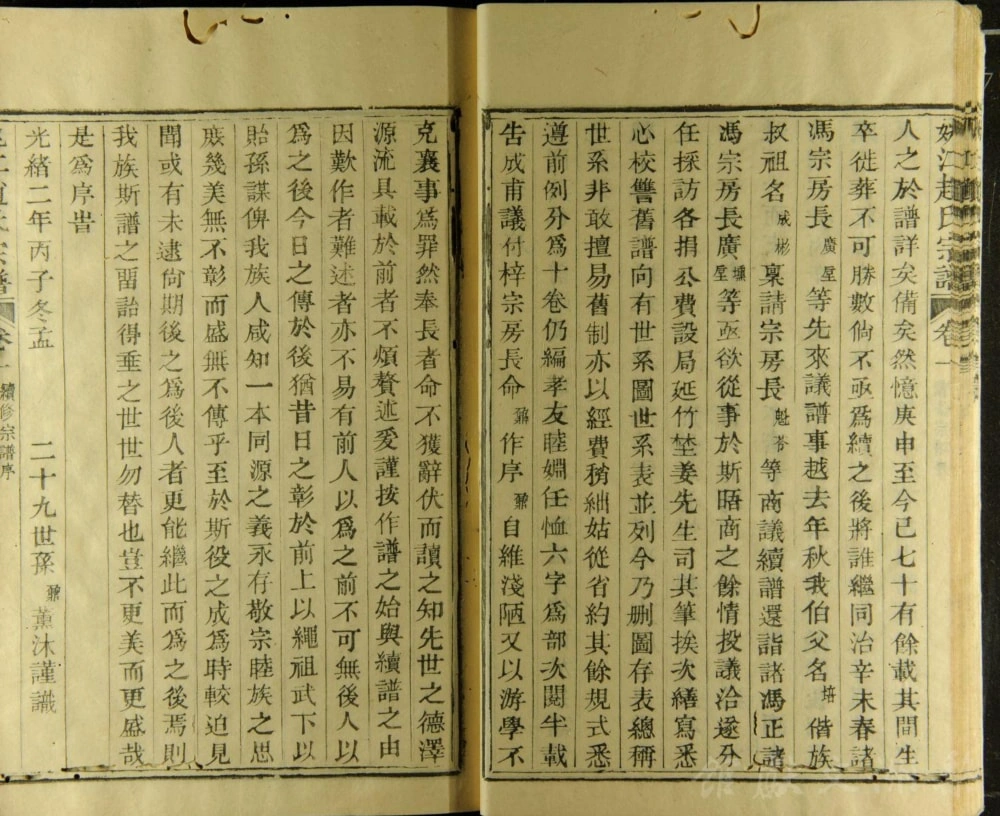 姚江趙氏宗譜 卷一
人之於譜詳矣備矣然憶庚申至今已七十有餘載其間生
卒徙葬不可勝數倘不亟爲續之後將誰繼同治辛未春諸
馮宗房長廣堂等先來議譜事越去年秋我伯父名培偕族
叔祖名成彬稟請宗房長魁峇等商議續譜還詣諸馮正諸
馮宗房長廣墉堂等亟欲從事於斯晤商之餘情投議洽遂分
任採訪各捐公費設局延竹埜姜先生司其筆挨次繕寫悉
心校讐舊譜向有世系圖世系表並列今乃删圖存表總稱
世系非敢擅易舊制亦以經費稍絀姑從省約其餘規式悉
遵前例分爲十卷仍編孝友睦婣任恤六字爲部次閱半載
告成甫議付梓宗房長命鼐作序鼐自維淺陋又以游學不
克襄事爲罪然奉長者命不獲辭伏而讀之知先世之德澤
源流具載於前者不煩贅述爰謹按作譜之始與續譜之由
因歎作者難述者亦不易有前人以爲之前不可無後人以
爲之後今日之傳於後猶昔日之彰於前上以繩祖武下以
貽孫謀俾我族人咸知一本同源之義永存敬宗睦族之思
庶幾美無不彰而盛無不傳乎至於斯役之成爲時較迫見
聞或有未逮尙期後之爲後人者更能繼此而爲之後焉則
我族斯譜之畱詒得垂之世世勿替也豈不更美而更盛哉
是爲序旹
光緒二年丙子冬孟 二十九世孫鼐薰沐謹識
宗譜 卷一 續修宗譜序